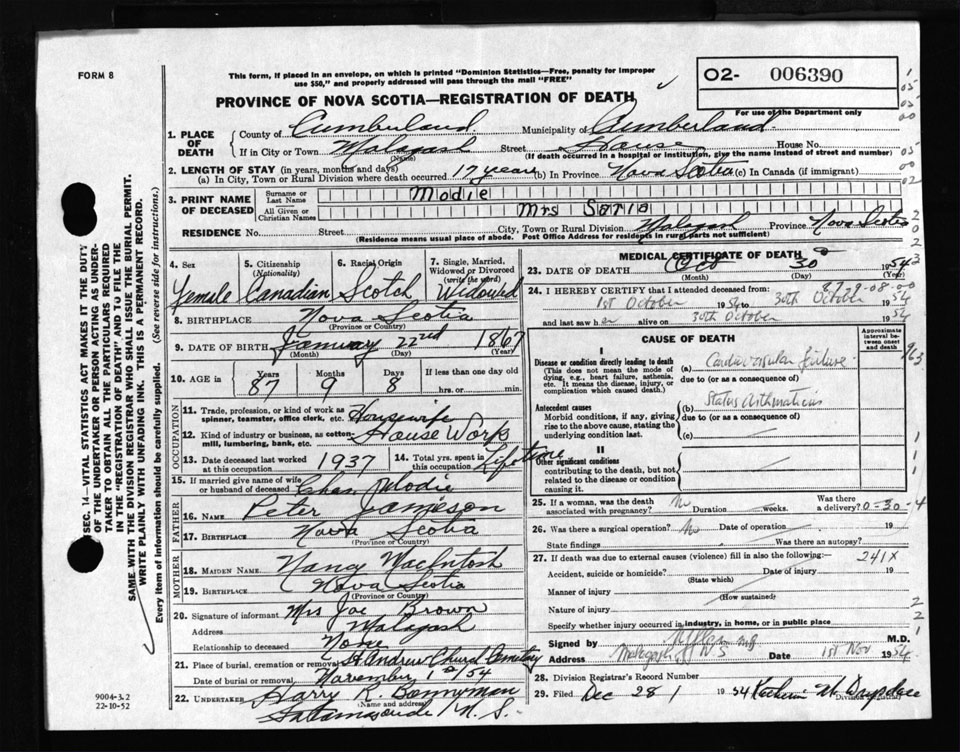 FORM 8
This form, if placed in an envelope, on which is printed "Dominion Statistics—Free, penalty for improper
use $50," and properly addressed will pass through the mail "FREE"
O2- 006390
PROVINCE OF NOVA SCOTIA—REGISTRATION OF DEATH
For use of the Department only
1. PLACE OF DEATH County of Cumberland Municipality of Cumberland
If in City or Town Malagash Street House House No.
(Name) (If death occurred in a hospital or institution, give the name instead of street and number)
2. LENGTH OF STAY (in years, months and days)
(a) In City, Town or Rural Division where death occurred 17 years (b) In Province Nova Scotia (c) In Canada (if immigrant)
3. PRINT NAME OF DECEASED Surname or Last Name Modie
All Given or Christian Names Mrs
RESIDENCE No. Street City, Town or Rural Division Malagash Province Nova Scotia
(Residence means usual place of abode. Post Office Address for residents in rural parts not sufficient)
4. Sex 5. Citizenship (Nationality) 6. Racial Origin 7. Single, Married, Widowed or Divorced (write the word)
Female Canadian Scotch Widowed
8. BIRTHPLACE Nova Scotia
(Province or Country)
9. DATE OF BIRTH January 22nd 1867
(Month) (Day) (Year)
10. AGE in Years Months Days If less than one day old
87 9 8 hrs. or min.
OCCUPATION
11. Trade, profession, or kind of work as
spinner, teamster, office clerk, etc. Housewife
12. Kind of industry or business, as cotton-
mill, lumbering, bank, etc. House Work
13. Date deceased last worked at this occupation 1937 14. Total yrs. spent in this occupation Lifetime
15. If married give name of wife
or husband of deceased Chas. Modie
FATHER
16. NAME Peter Jameson
17. BIRTHPLACE Nova Scotia
(Province or Country)
MOTHER
18. MAIDEN NAME Nancy MacIntosh
19. BIRTHPLACE Nova Scotia
(Province or Country)
20. Signature of informant Mrs Joe Brown
Address Malagash
Relationship to deceased None
21. Place of burial, cremation or removal St Andrew Church Cemetery
Date of burial or removal November 1st/54
22. UNDERTAKER Harry K. Bonnyman
(Name and address)
N.S.
MEDICAL CERTIFICATE OF DEATH
23. DATE OF DEATH Oct 30 1954
(Month) (Day) (Year)
24. I HEREBY CERTIFY that I attended deceased from
1st October 1954 to 30th October 1954
and last saw her alive on 30th October 1954
CAUSE OF DEATH
Approximate interval between onset and death
I
Disease or condition directly leading to death
(This does not mean the mode of
dying, e.g., heart failure, asthenia,
etc. It means the disease, injury, or
complication which caused death.)
(a) Cardiovascular failure
due to (or as consequence of)
Antecedent causes
Morbid conditions, if any, giving
rise to the above cause, stating the
underlying condition last.
(b) Status Asthmaticus
due to (or as a consequence of)
(c)
II
Other significant conditions
contributing to the death, but not
related to the disease or condition
causing it.
25. If a woman, was the death associated with pregnancy? No Duration weeks. Was there a delivery?
0-30-4
26. Was there a surgical operation? No Date of operation 19
State findings Was there an autopsy?
27. If death was due to external causes (violence) fill in also the following:— 241X
Accident, suicide or homicide? Date of injury 19
(State which)
Manner of injury
(How sustained)
Nature of injury
Specify whether injury occurred in industry, in home, or in public place
Signed by M.D.
Address Malagash NS Date 1st Nov 1954
28. Division Registrar's Record Number
29. Filed Dec 28 1954
Division Registrar
SEC. 14—VITAL STATISTICS ACT MAKES IT THE DUTY
OF THE UNDERTAKER OR PERSON ACTING AS UNDER-
TAKER TO OBTAIN ALL THE PARTICULARS REQUIRED
IN THE "REGISTRATION OF DEATH" AND TO FILE THE
SAME WITH THE DIVISION REGISTRAR WHO SHALL ISSUE THE BURIAL PERMIT.
WRITE PLAINLY WITH UNFADING INK. THIS IS A PERMANENT RECORD.
Every item of information should be carefully supplied. (See reverse side for instructions.)
9004-3.2
22-10-52